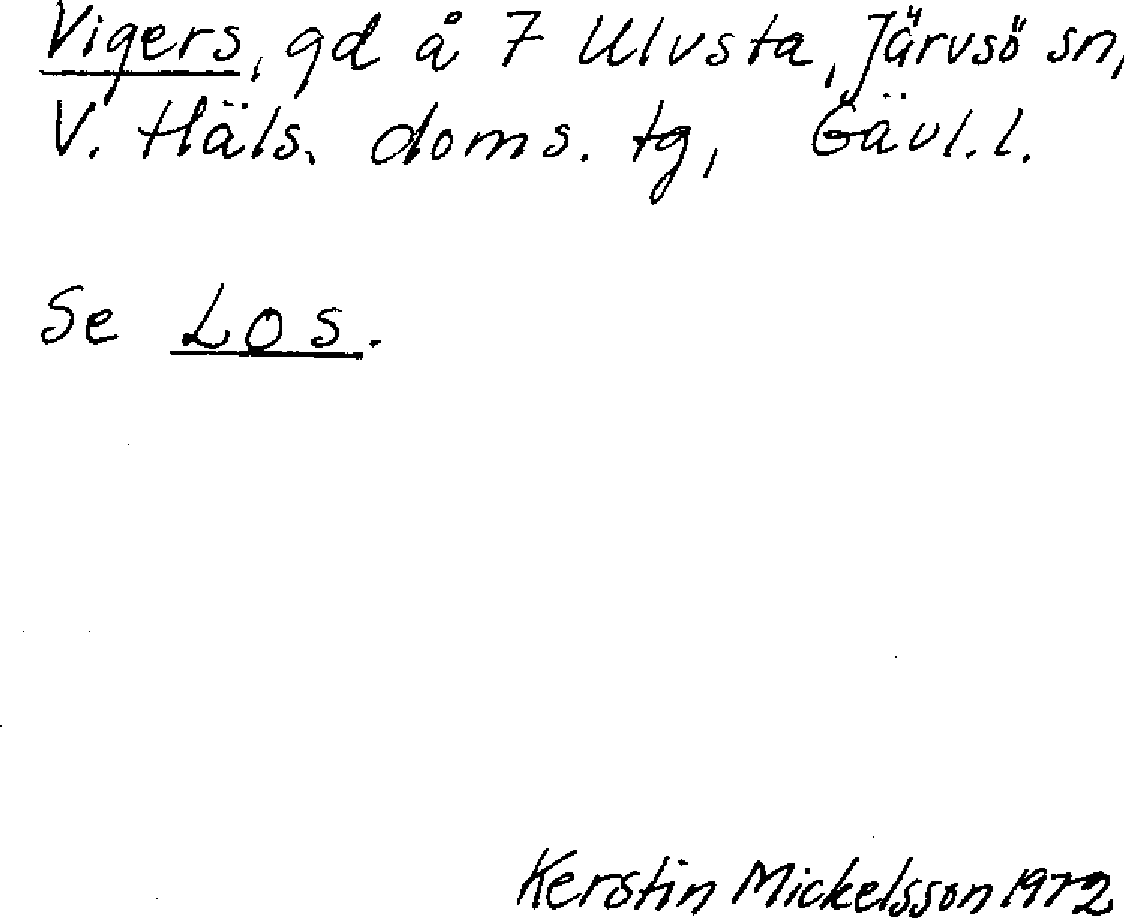 Vigers, gd å 7 Ulvsta, Järvsö sn,
V. Häls. doms. tg, Gävl.l.
Se Los.
Kerstin Mickelsson 1972